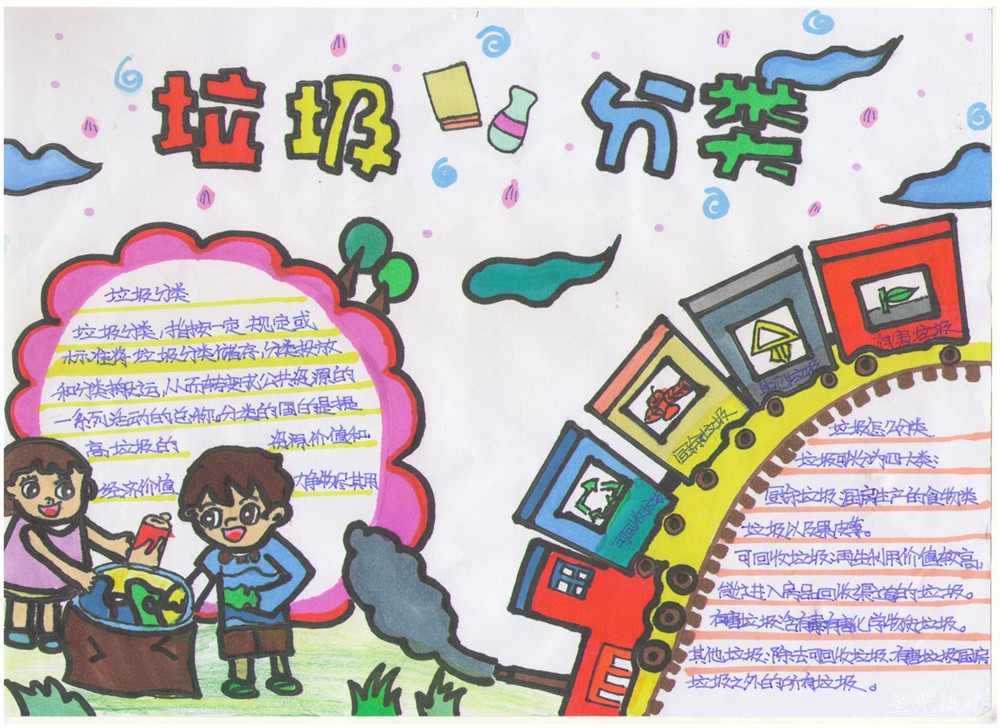 垃圾分类
垃圾分类
垃圾分类,指按一定规定或
标准将垃圾分类储存,分类投放
和分类搬运,从而转变成公共资源的
一系列活动的总称。分类的目的是提
高垃圾的 资源价值和
经济价值 物尽其用
有害垃圾
其他垃圾
厨余垃圾
可回收垃圾
垃圾怎么分类
垃圾可分为四大类:
厨余垃圾:厨房生产的食物类
垃圾以及果皮等。
可回收垃圾:再生利用价值较高,
能进入废品回收渠道的垃圾。
有害垃圾含有害化学物质垃圾。
其他垃圾:除去可回收垃圾,有害垃圾,厨房
垃圾之外的所有垃圾。